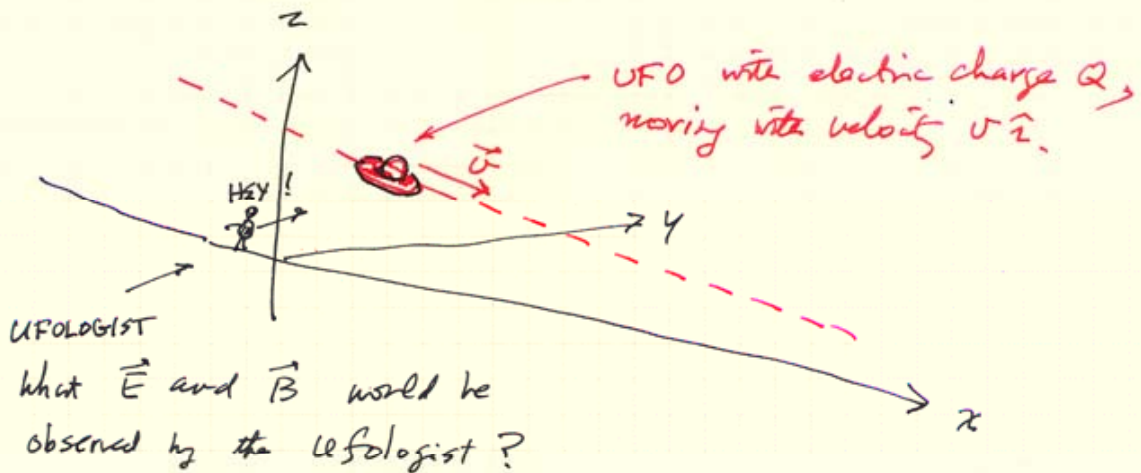 z
UFO with electric charge Q,
moving with velocity v î.
v⃗
HEY!
y
UFOLOGIST
What E⃗ and B⃗ would be
observed by the ufologist?
x